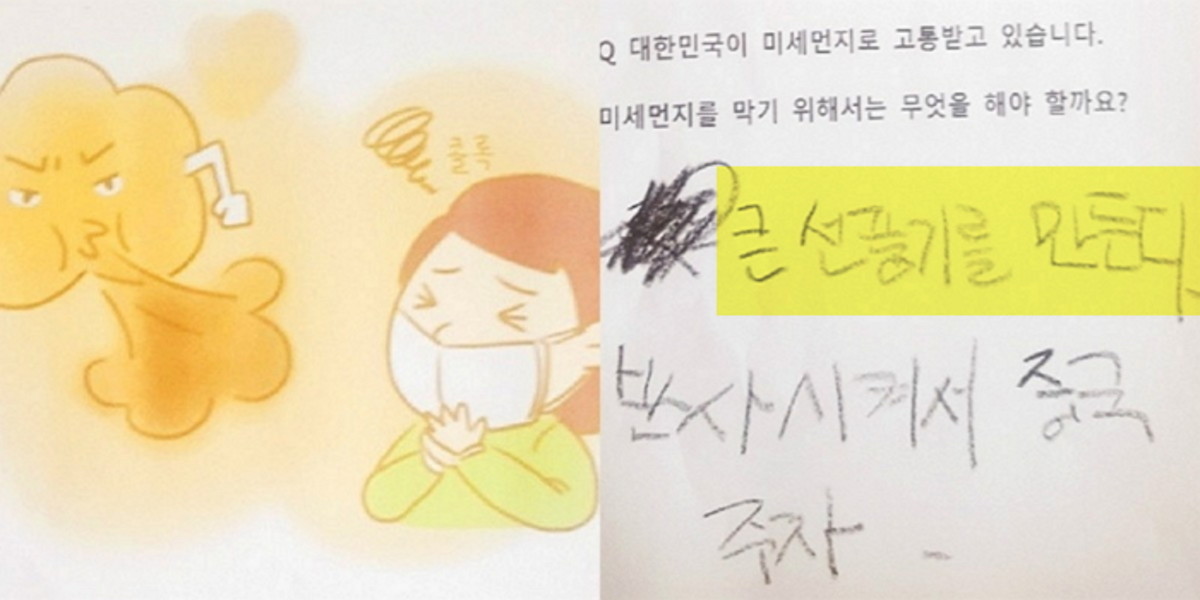 콜록
Q 대한민국이 미세먼지로 고통받고 있습니다.
미세먼지를 막기 위해서는 무엇을 해야 할까요?
큰 선풍기를 만든다.
반사시켜서 중국
주자